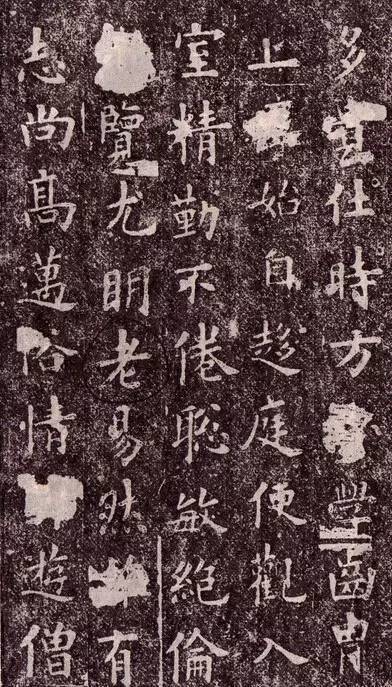 多仕時方學齒胄
上始自趍庭便觀入
室精勤不倦聡敏絶倫
覽尤明老易然有
志尚髙邁俗情遊僧